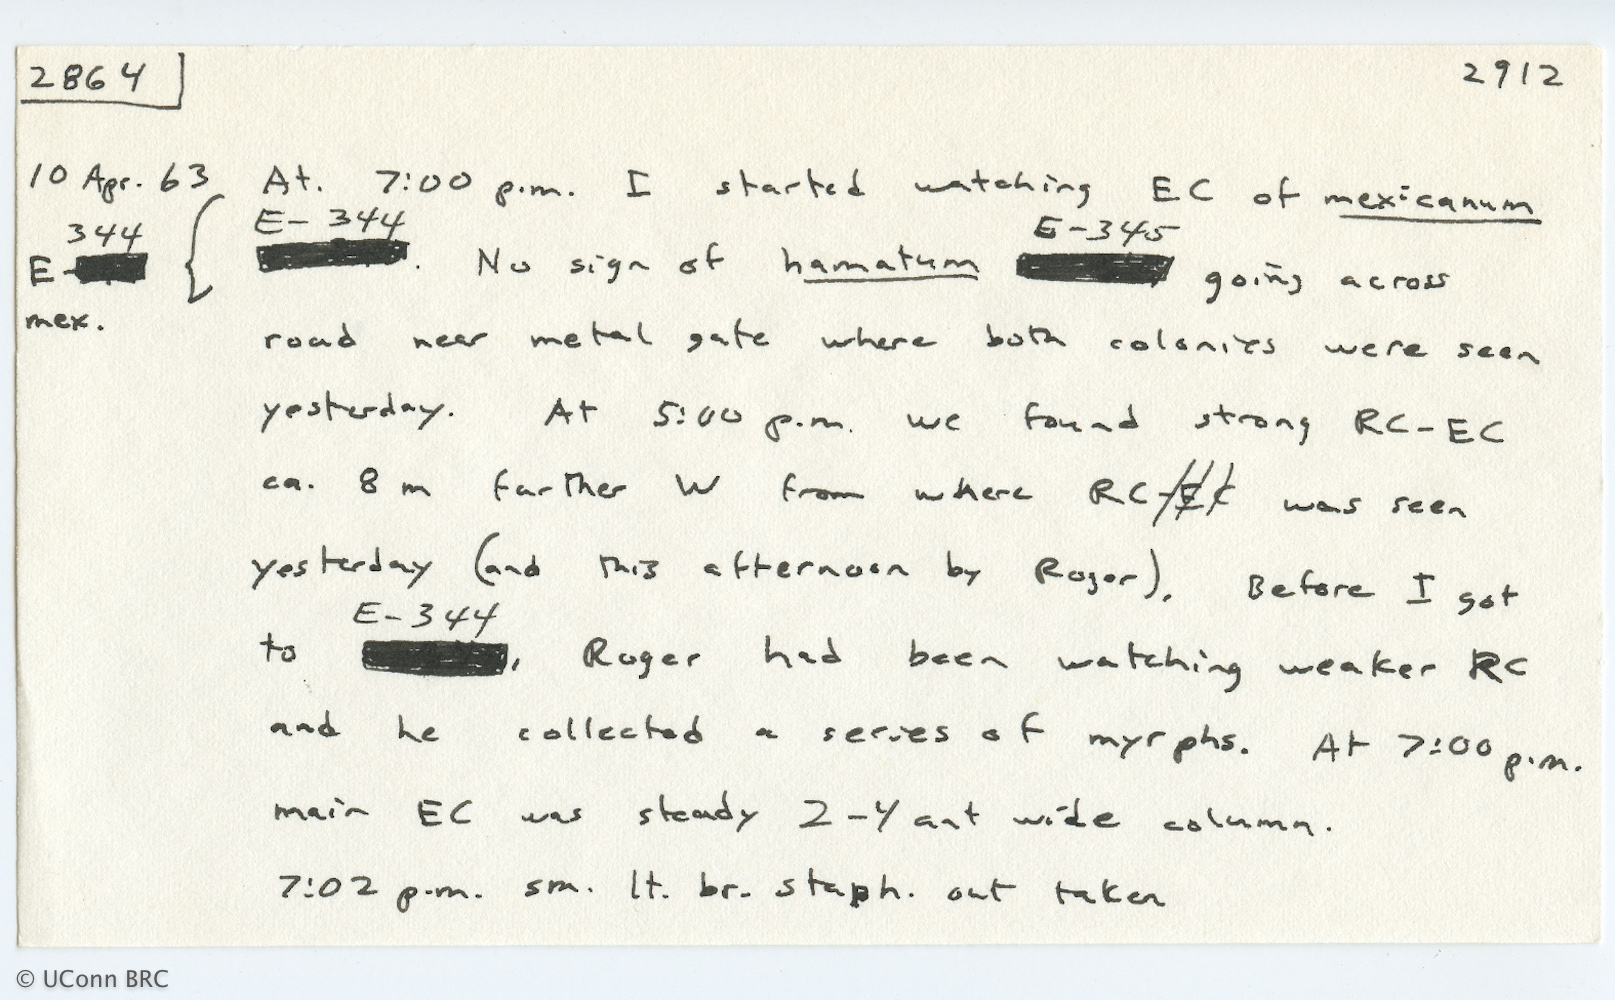 2864
2912
10 Apr. 63 At. 7:00 p.m. I started watching EC of mexicanum
344
E-
mex.
E-344 . No sign of hamatum E-345 going across
road near metal gate where both colonies were seen
yesterday. At 5:00 p.m. we found strong RC-EC
ca. 8 m farther W from where RC-EC was seen
yesterday (and this afternoon by Roger). Before I got
to E-344, Roger had been watching weaker RC
and he collected a series of myrphs. At 7:00 p.m.
main EC was steady 2-4 ant wide column.
7:02 p.m. sm. lt. br. staph. out taken
© UConn BRC